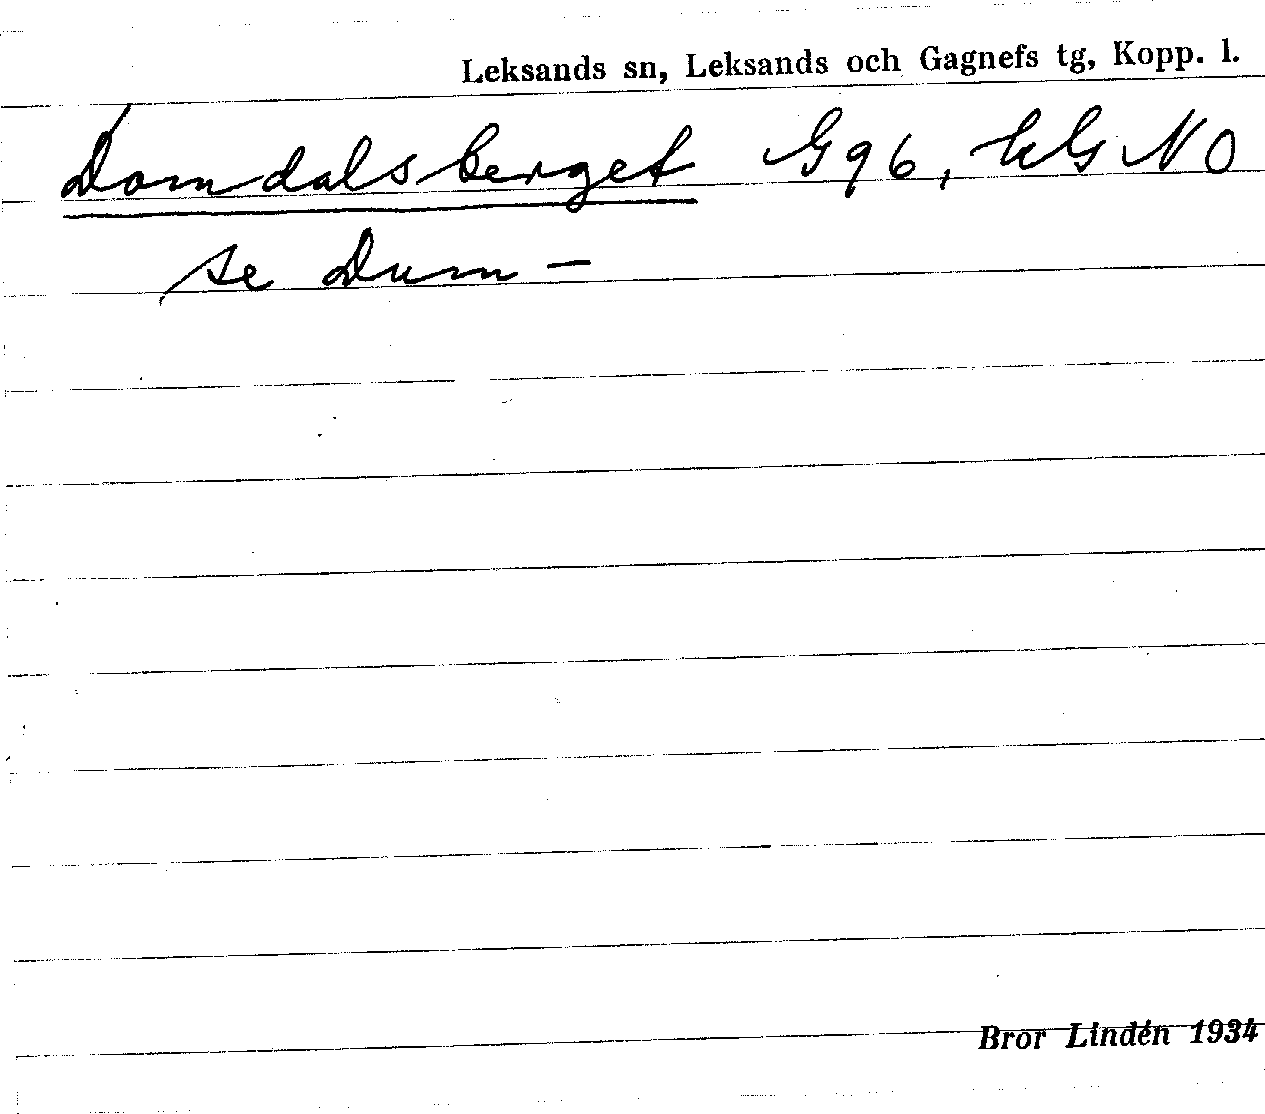 Leksands sn, Leksands och Gagnefs tg, Kopp. l.
Domdalsberget G96, hG NO
se Dum-
Bror Lindén 1934